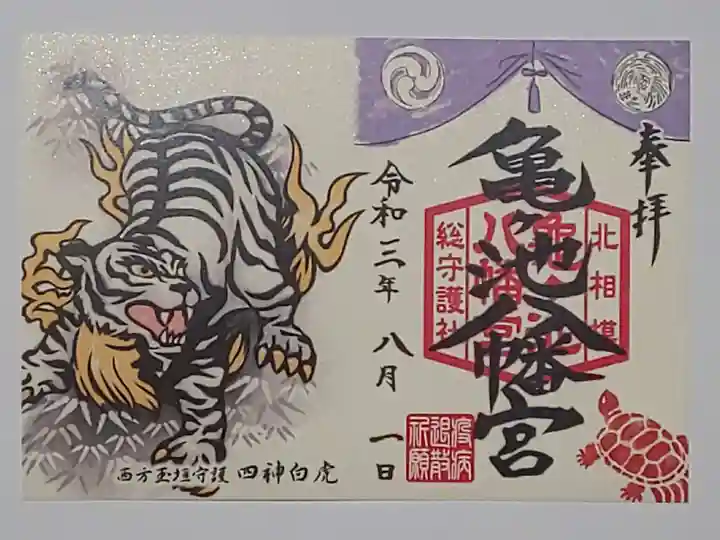 奉拝
亀ヶ池八幡宮
北相模
総守護社
令和三年 八月 一日
疫病
退散
祈願
西方玉垣守護 四神白虎